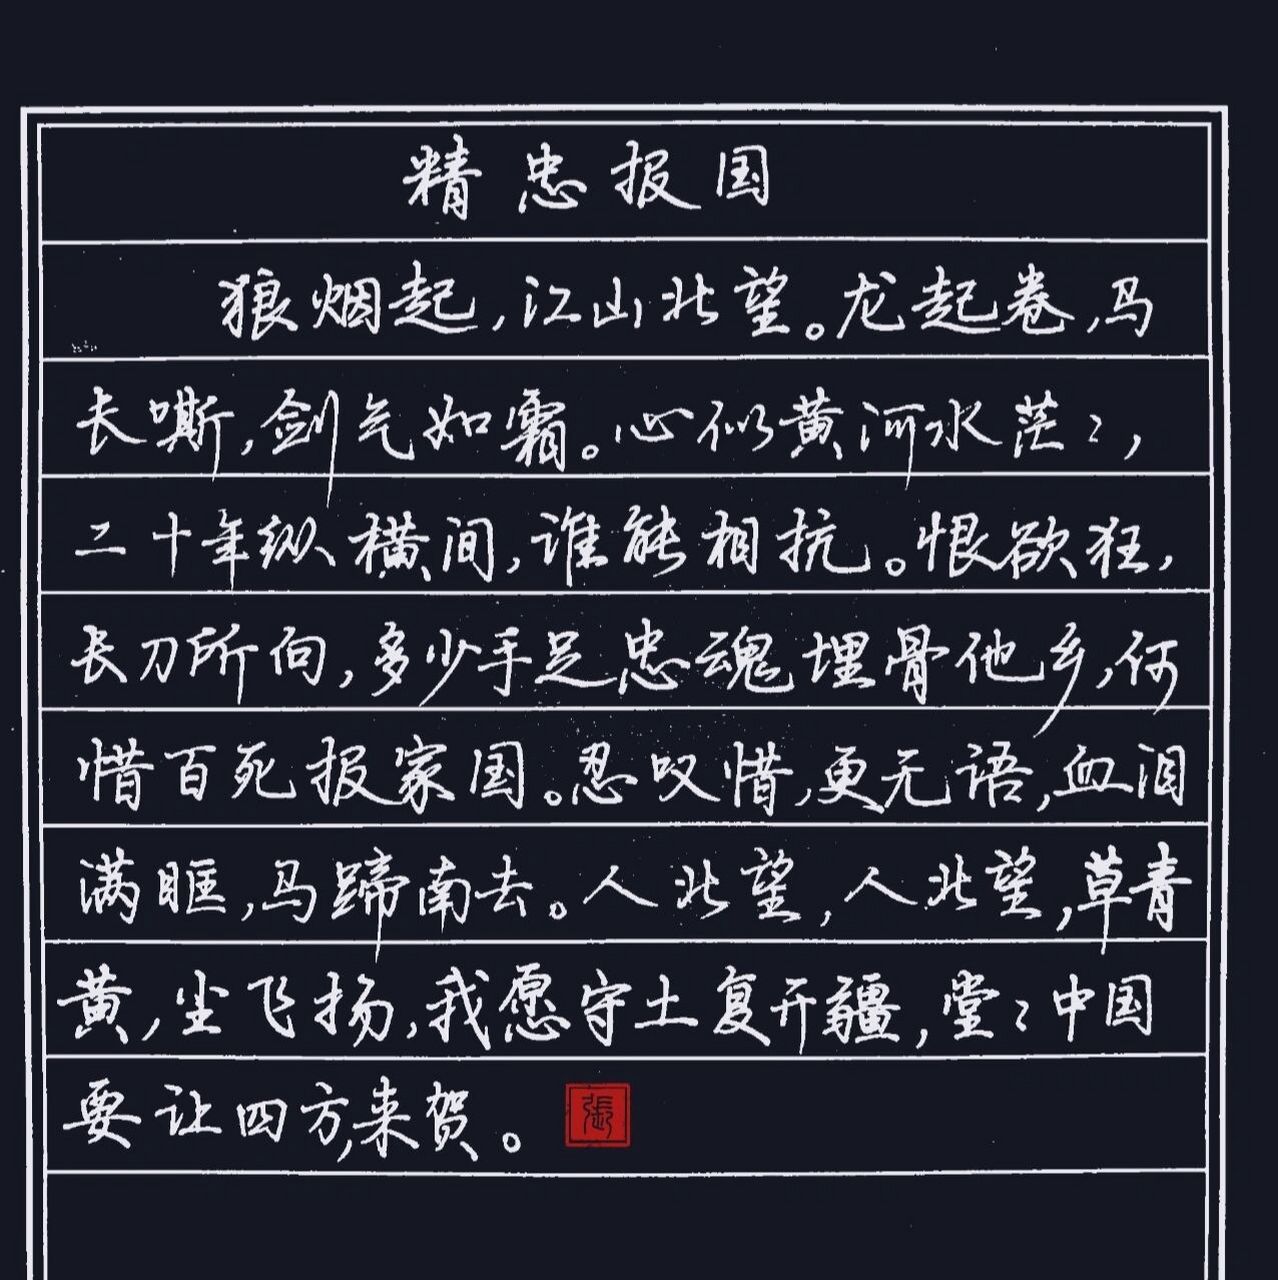 精忠报国
狼烟起,江山北望。龙起卷,马
长嘶,剑气如霜。心似黄河水茫〻,
二十年纵横间,谁能相抗。恨欲狂,
长刀所向,多少手足忠魂埋骨他乡,何
惜百死报家国。忍叹惜,更无语,血泪
满眶,马蹄南去。人北望,人北望,草青
黄,尘飞扬,我愿守土复开疆,堂〻中国
要让四方,来贺。
張